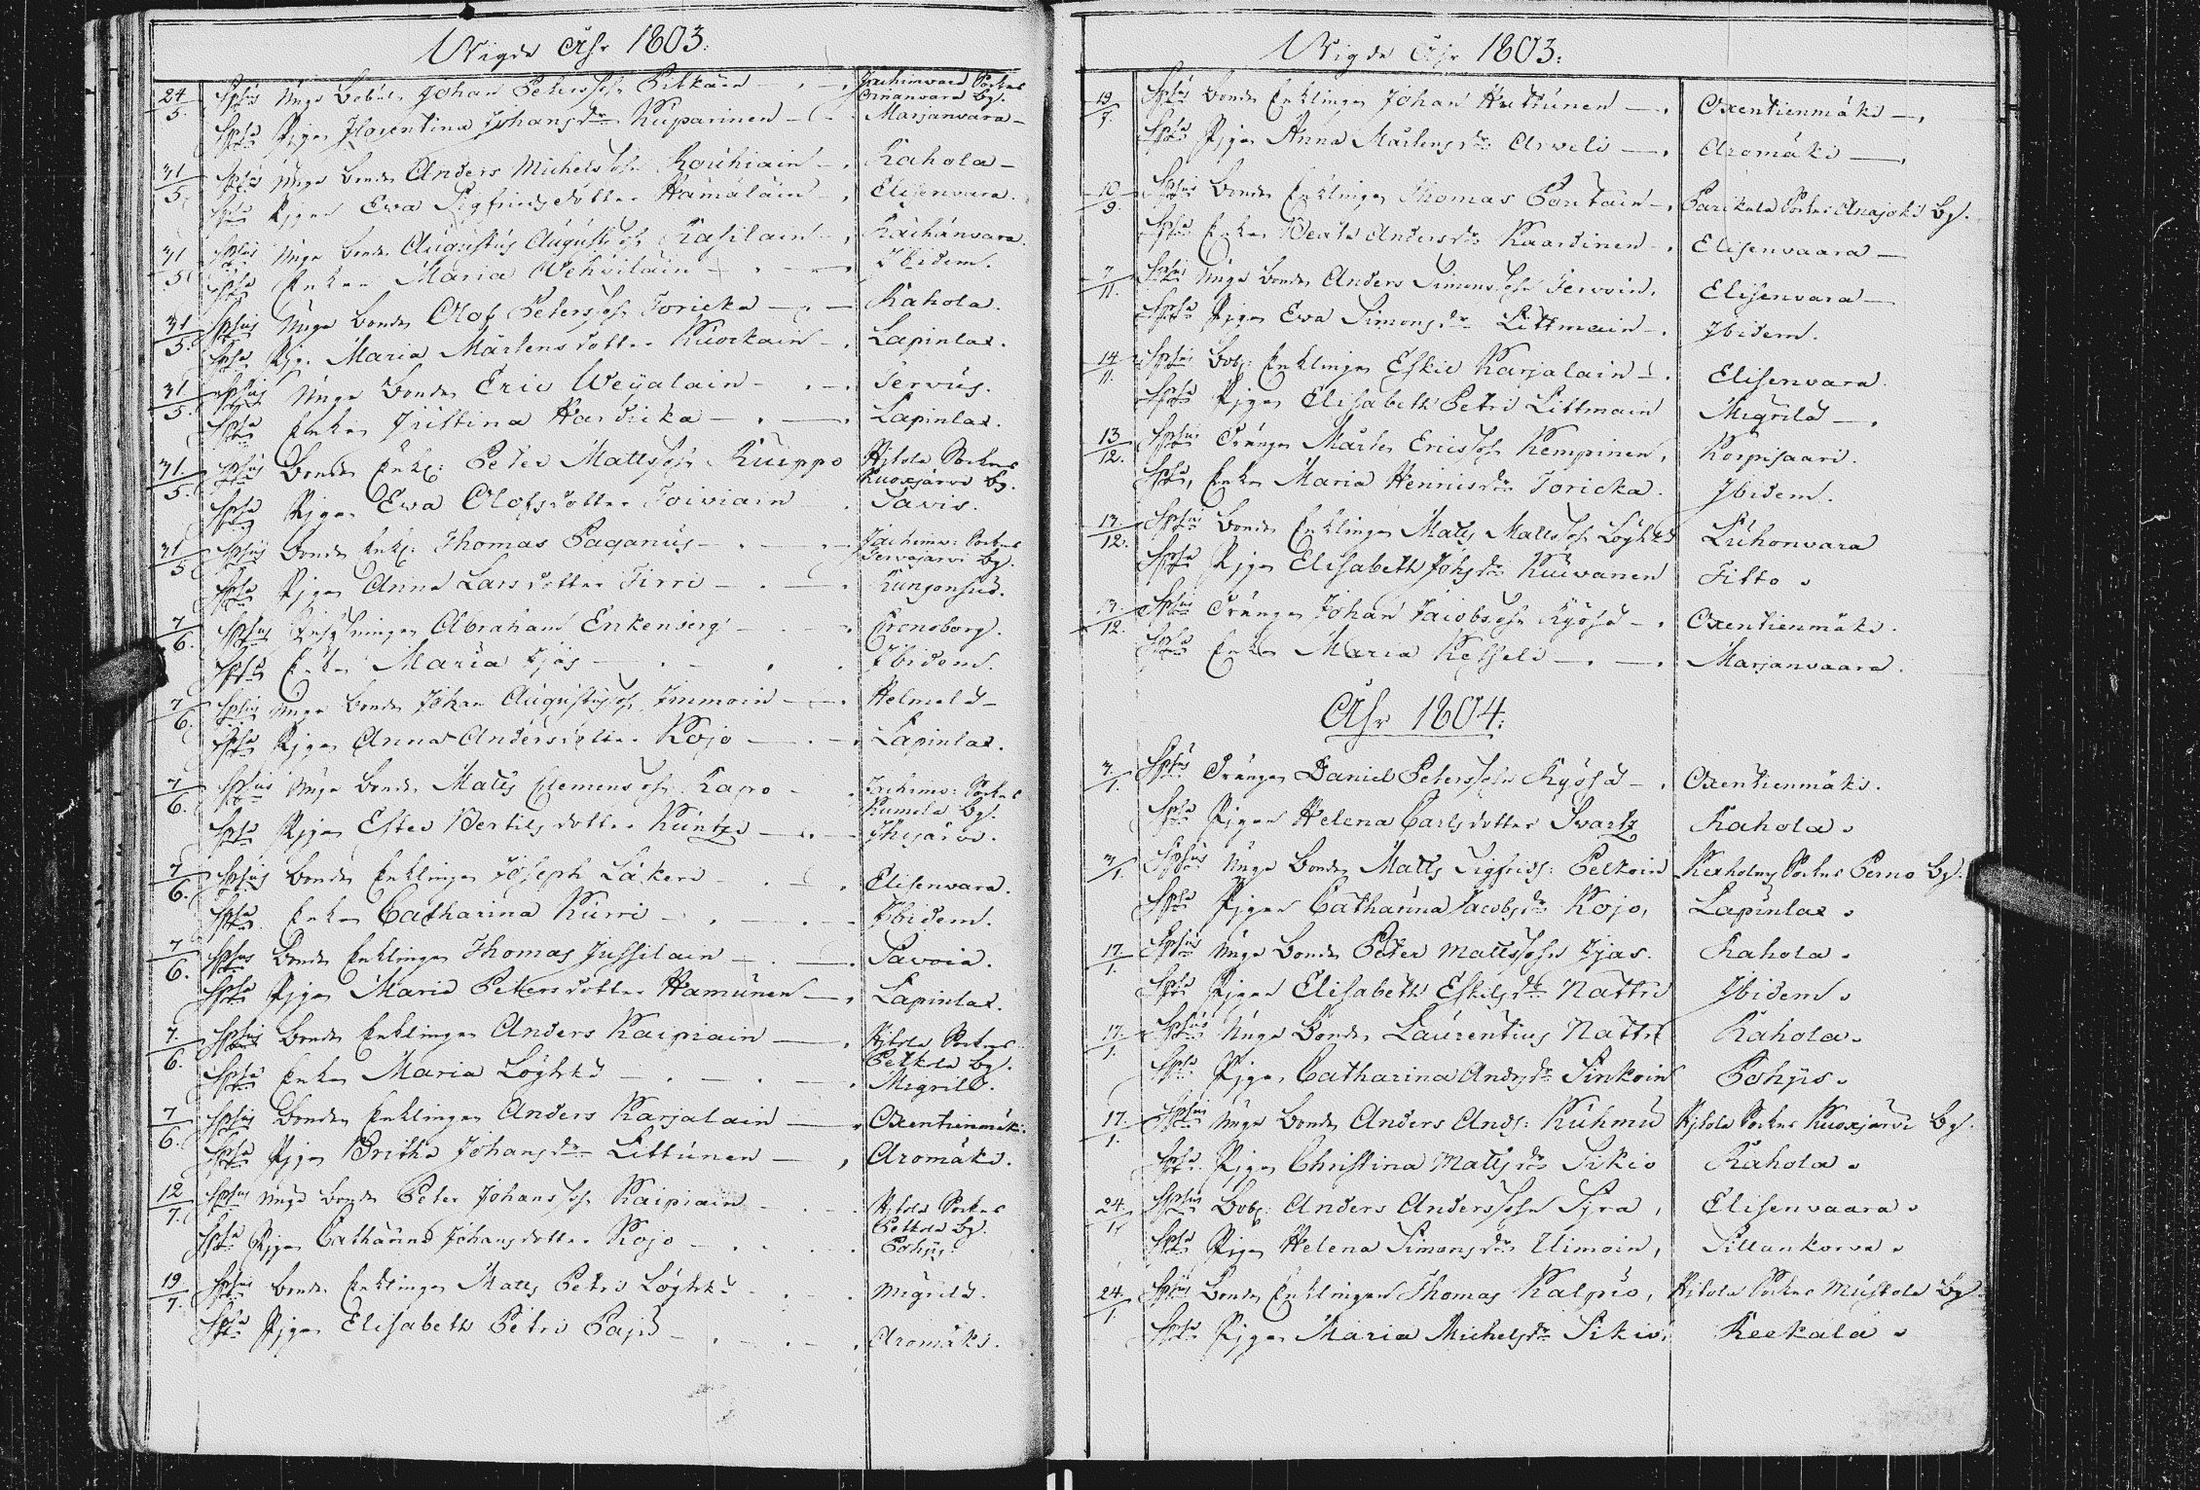 Wigde Åhr 1803:
24/5. Spsus Unge Bobÿl. Johan Peterssohn Pitkäin Jachimvara Sockns
Spsa Pigan Florentina Johansdr Kuparinen Marjanvara
31/5. Spsus Unge Bonden Anders Michelssohn Rouhiain Rahola
Spsa Pigan Ewa Sigfridsdotter Hämäläin Elisenvara.
31/5. Spsus Unge Bonden Augustus Augustssohn Kasilain Räihänvara
Spsa Enkan Maria Wehviläin Ibidem.
31/5. Spsus Unge Bonden Olof Peterssohn Toricka Rahola.
Spsa Pig. Maria Mårtensdotter Kuorkain Lapinlax.
31/5. Spsus Unge Bonden Eric Weijalain Servus.
Spsa Enkan Justina Hardicka Lapinlax.
31/5. Spsus Bonden Enkl: Peter Mattssohn Kuippo Hjtola Sockns
Kuoxjärvi by.
Spsa Pigan Ewa Olofsdotter Toiviain Savis.
31/5 Spsus Bonden Enkl: Thomas Paganus Jachimv: Sockns
Tervajärvi by.
Spsa Pigan Anna Larsdotter Tirri
7/6. Spsus Abraham Enkenberg Cronoborg.
Spsa Enkan Maria Ijäs Ibidem.
7/6. Spsus Unge Bonden Johan Augustssohn Immoin Helmelä
Spsa Pigan Anna Andersdotter Kojo Lapinlax.
7/6. Spsus Unge Bonden Matts Clemenssohn Kapo Jachimv: Sockns
Kumola by.
Spsa Pigan Ester Bertilsdotter Kuntzi Ihojärvi.
7/6. Spsus Bonden Enklingen Joseph Läkeri Elisenvara.
Spsa Enkan Catharina Kurri Ibidem.
7/6. Spsus Bonden Enklingen Thomas Jussilain Savoia.
Spsa Pigan Maria Petersdotter Hamunen Lapinlax.
7/6. Spsus Bonden Enklingen Anders Kaipiain Hjtola Sockns
Petkola by.
Spsa Enkan Maria Löghkö Migrilä.
7/6. Spsus Bonden Enklingen Anders Karjalain Oxentienmäki
Spsa Pigan Britha Johansdr Littunen Aromäki.
12/7. Spsus Unge Bonden Peter Johanssohn Kaipiain Hjtola Sockns
Petkola by.
Spsa Pigan Catharina Johansdotter Kojo Pohjis.
19/7. Spsus Bonden Enklingen Matts Petri Löghkö Migrilä.
Spsa Pigan Elisabeth Petri Paju Aromäki.
Wigde Åhr 1803:
19/7. Spsus Bonden Enklingen Johan Huttunen Oxentienmäki
Spsa Pigan Anna Mårtensdr Arveli Aromäki
10/9. Spsus Bonden Enklingen Thomas Pontain Parikala Sockns Anajoki by.
Spsa Enkan Beata Andersdr Kaardinen Elisenvaara
7/11. Spsus Unge Bonden Anders Simonssohn Tervoin, Elisenvara
Spsa Pigan Ewa Simonsdr Littmain Ibidem.
14/11. Spsus Bob: Enklingen Eskil Karjalain Elisenvara.
Spsa Pigan Elisabeth Petri Littmain Migrilä
13/12. Spsus Drängen Mårten Ericssohn Kempinen, Korpisaari.
Spsa, Enkan Maria Henricsdr Toricka. Ibidem.
13/12. Spsus Bonden Enklingen Matts Mattssohn Löghkö Luhonvara
Spsa Pigan Elisabeth Johsdr Kuivanen Titto
13/12. Spsus Drängen Johan Jacobssohn Kyösä Oxentienmäki.
Spsa Enkan Maria Kesseli Marjanvaara.
Åhr 1804:
3/1. Spsus Drängen Daniel Peterssohn Kyösä Oxentienmäki.
Spsa Pigan Helena Carlsdotter Svartz Rahola
3/1. Spsus Unge Bonden Matts Sigfrids: Pelkoin Kexholms Sockns Perno by.
Spsa Pigan Catharina Jacobsdr Kojo, Lapinlax
17/1. Spsus Unge Bonden Peter Mattssohn Ijas. Rahola
Spsa Pigan Elisabeth Eskilsdr Nattri Ibidem
17/1. Spsus Unge Bonden Laurentius Nattri Rahola
Spsa Pigan Catharina Andsdr Sinkoin Pohjis
17/1. Spsus Unge Bonden Anders Ands: Kuhmu Hjtola Sockns Kuoxjärvi by.
Spsa Pigan Christina Mattsdr Sikiö Rahola
24/1. Spsus Bob: Anders Anderssohn Syra, Elisenvaara
Spsa Pigan Helena Simonsdr Uimoin, Sillankorva
24/1. Spsus Bonden Enklingen Thomas Kalpio, Hitola Sockns Mustola by.
Spsa Pigan Maria Michelsdr Sikiö, Reekala